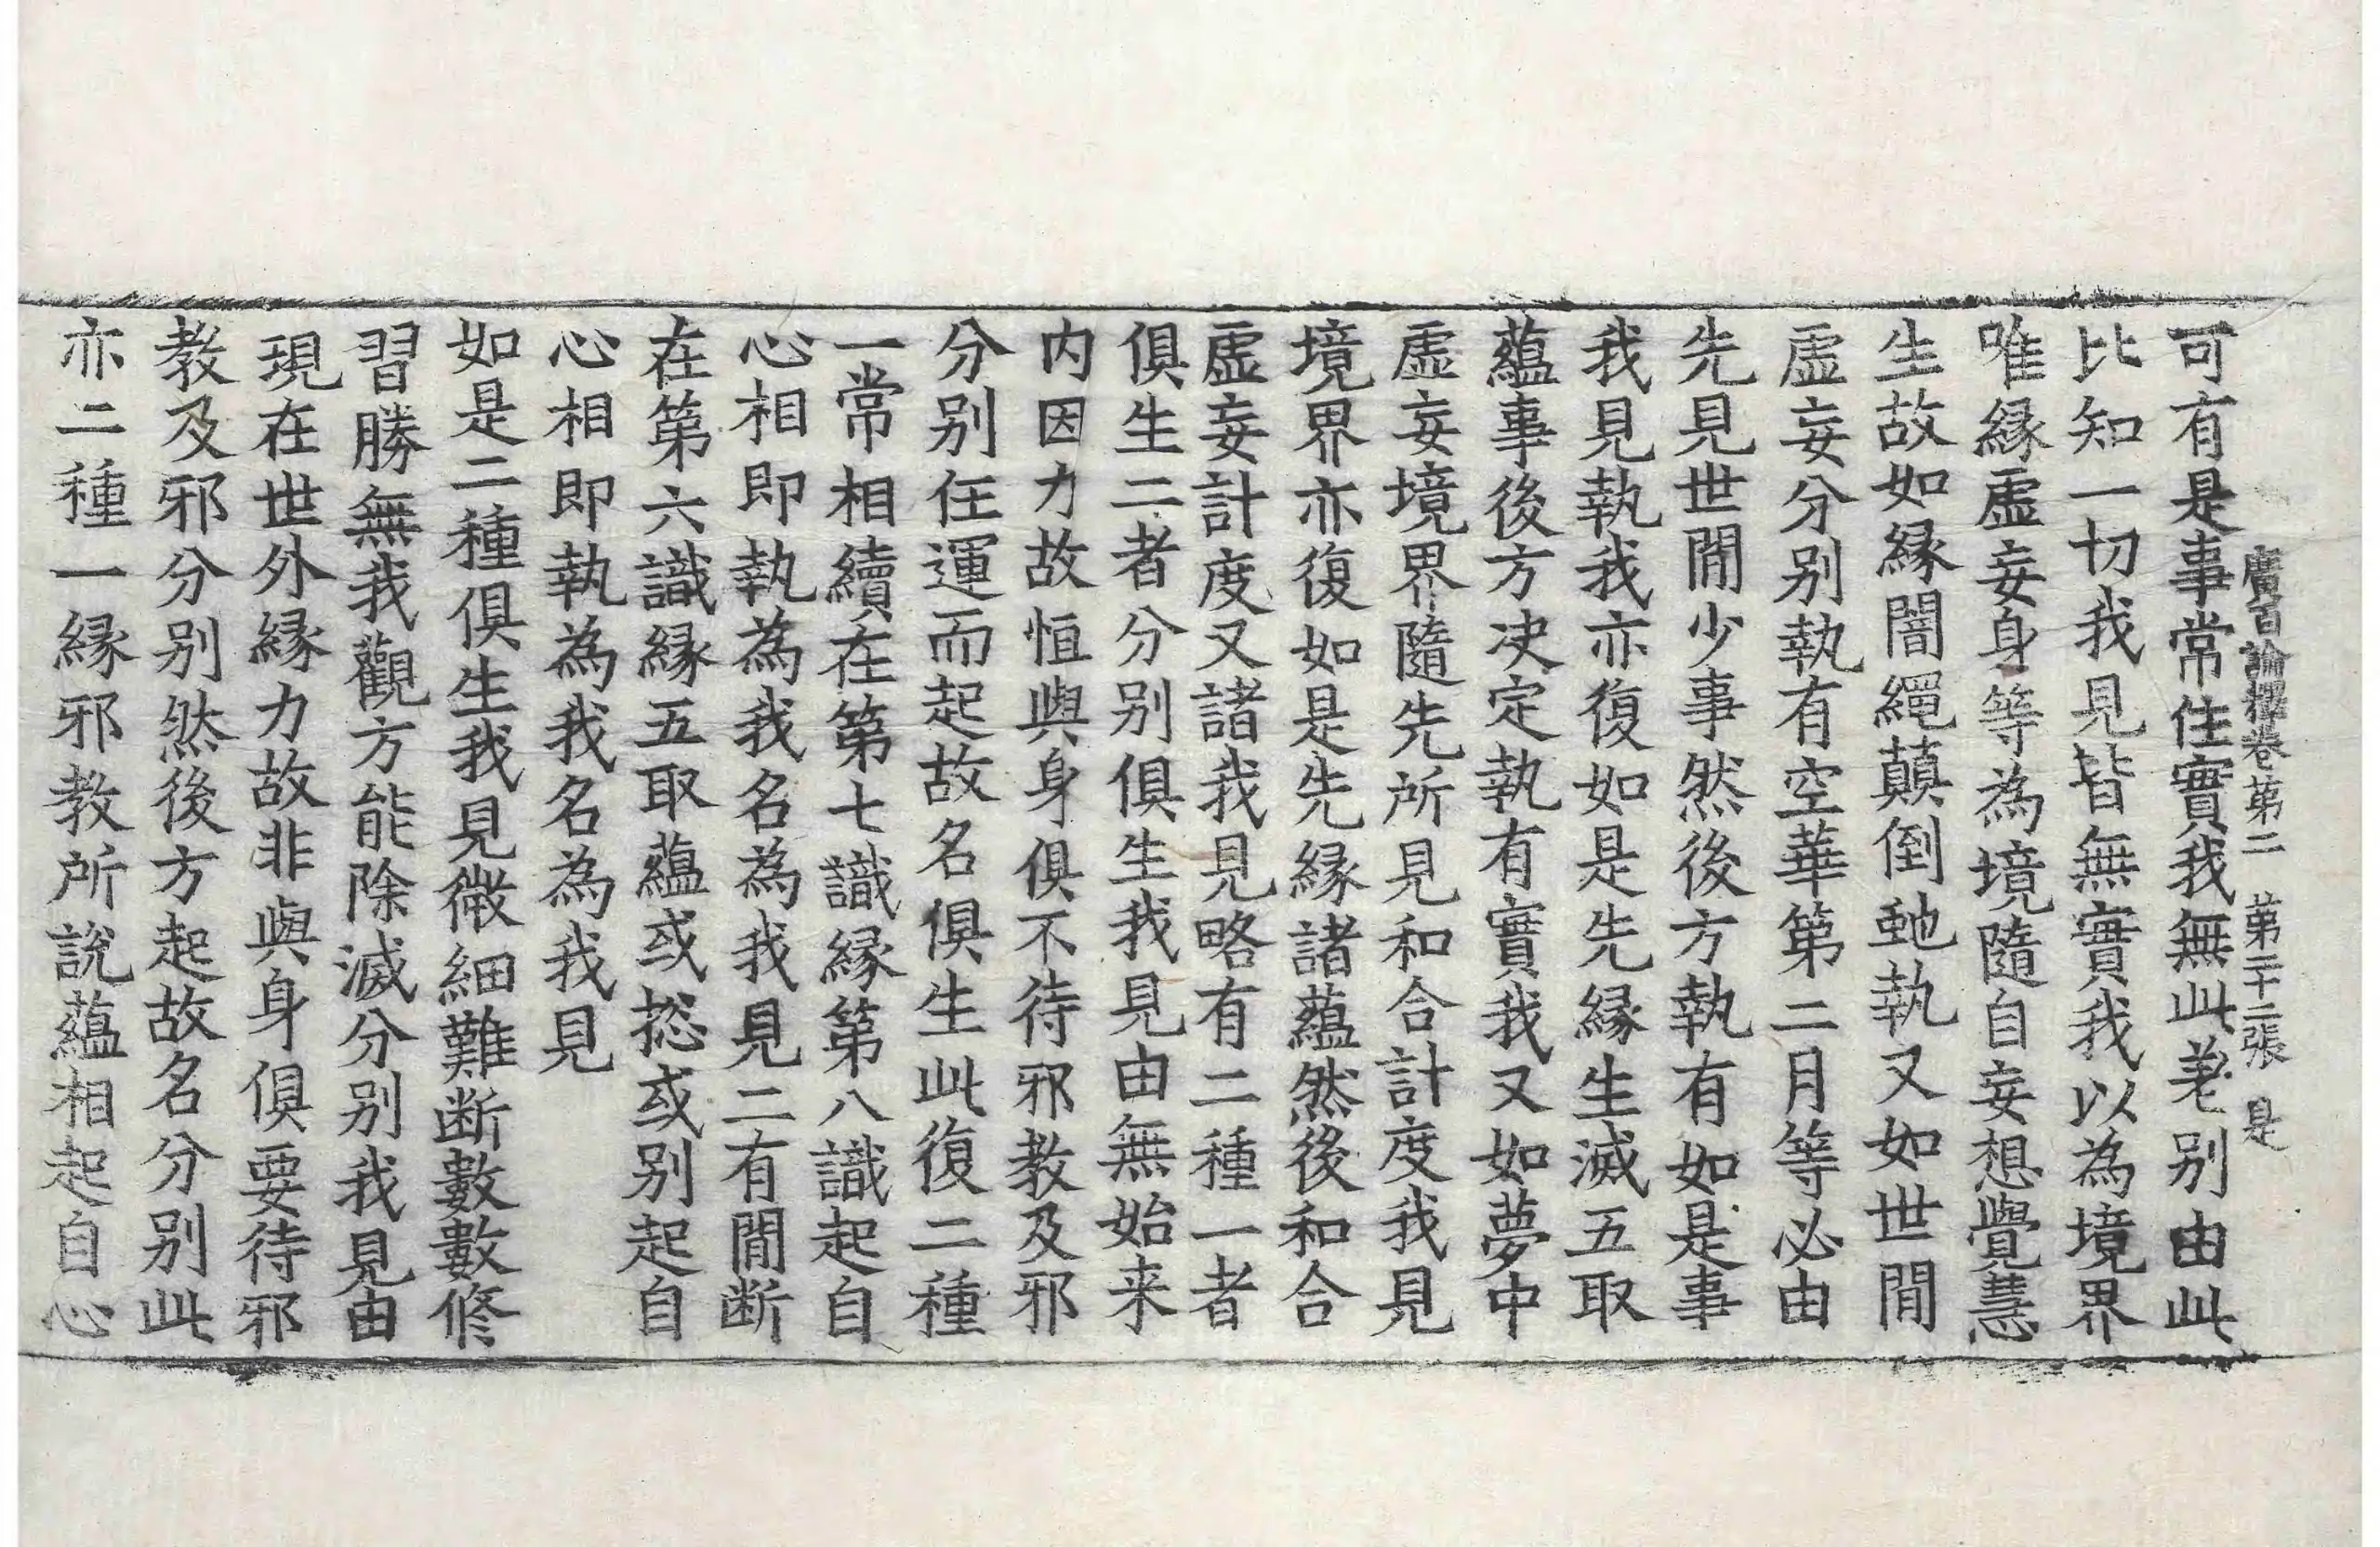 廣百論釋卷第二　第二十二張　是
可有是事常住實我無此差別由此
比知一切我見皆無實我以為境界
唯縁虛妄身等為境隨自妄想覺慧
生故如縁闇繩顛倒虵執又如世間
虛妄分別執有空華第二月等必由
先見世間少事然後方執有如是事
我見執我亦復如是先縁生滅五取
蘊事後方决定執有實我又如夢中
虛妄境界隨先所見和合計度我見
境界亦復如是先縁諸蘊然後和合
虛妄計度又諸我見略有二種一者
俱生二者分別俱生我見由無始来
内因力故恒與身俱不待邪教及邪
分別任運而起故名俱生此復二種
一常相續在第七識縁第八識起自
心相即執為我名為我見二有間断
在第六識縁五取蘊或揔或別起自
心相即執為我名為我見
如是二種俱生我見微細難断數數修
習勝無我觀方能除滅分別我見由
現在世外縁力故非與身俱要待邪
教及邪分別然後方起故名分別此
亦二種一縁邪教所說蘊相起自心